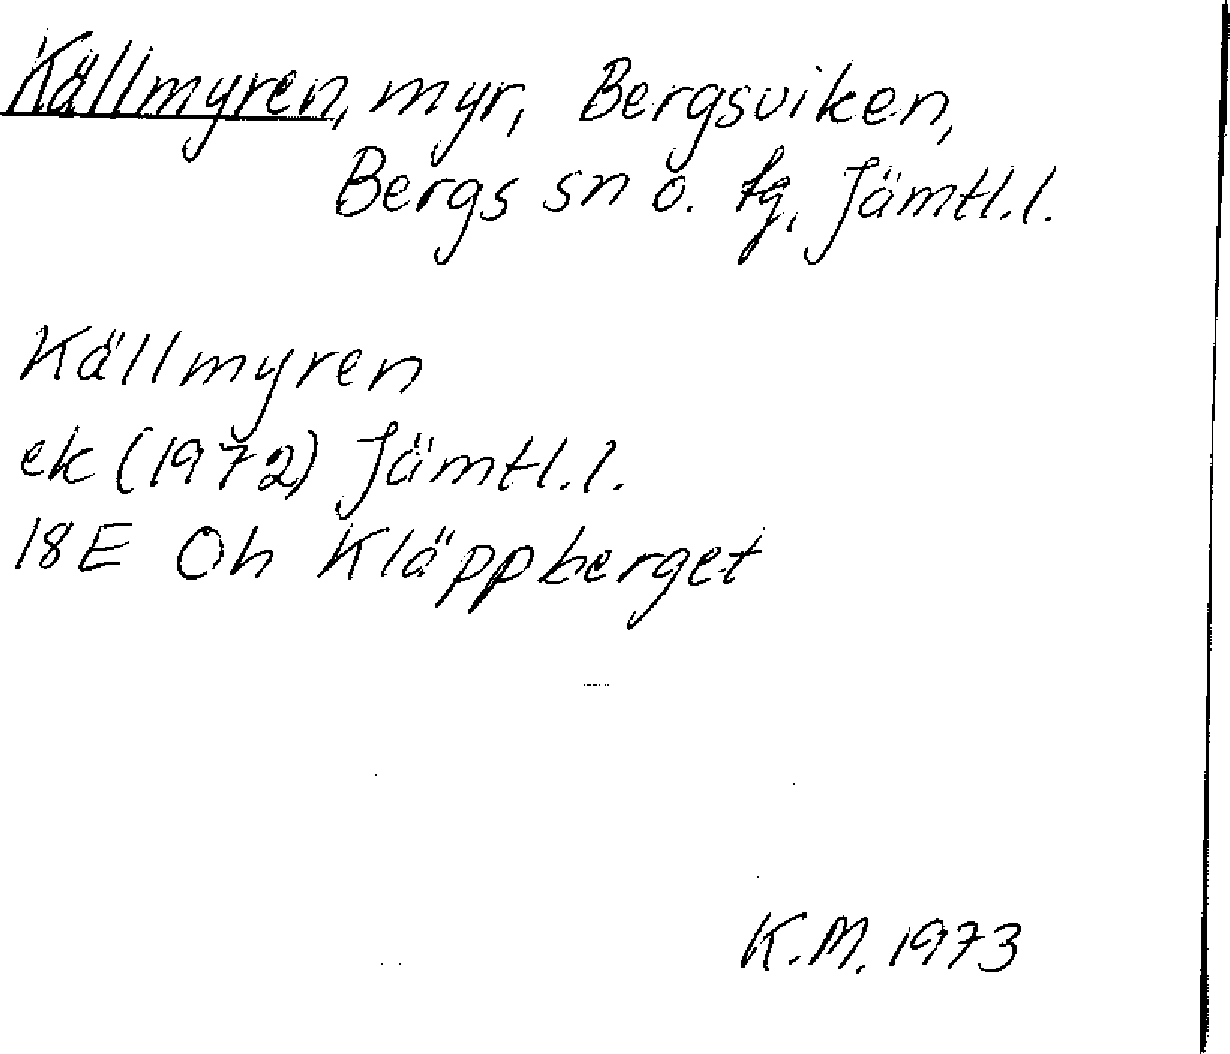 Källmyren, myr, Bergsviken,
Bergs sn o. tg, Jämtl.l.
Källmyren
ek (1972) Jämtl.l.
18E Oh Kläppberget
K.M. 1973